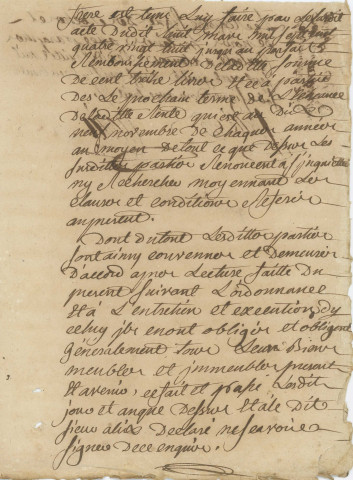 frere est tenu luy faire par
acte dudit huit mars mil sept cent
quatre vingt huit jusqu'au parfait
Remboursement de ladite somme
de cent trise livres et ce a partir
des Le prochain terme de L'Echeance
de laditte Rente qui est au dit
neuf novembre de chaque année
au moyen de tout ce que dessus Les
susdittes parties Renoncent a s'inquieter
ny Rechercher moyennant Les
clauses et conditions
au present.
Dont du tout Lesdittes parties
sont ainsy convenues et Demeurées
D'accord apres Lecture faitte du
present suivant L'ordonnance
et a L'entretien et execution dy
celuy ils enont obligés et obligent
Generalement tous Leurs Biens
meubles et immeubles present
et avenir, ce fait et passé Lesdit
jour et an que Dessus et a Le Dit
sieur alix Declaré ne scavoir
signer de ce enquis.